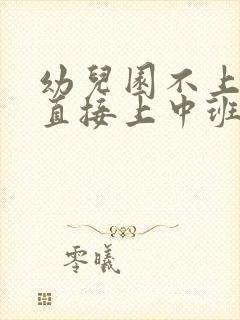 幼兒園不上
直接上中班
零曦